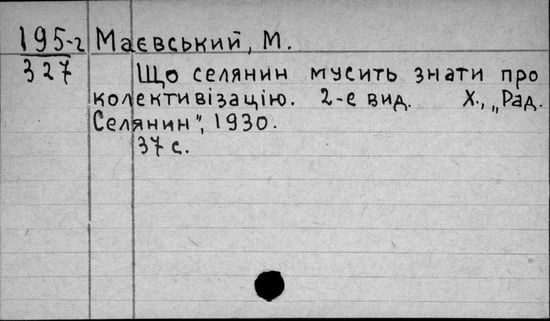 195-г Маєвський, М.
327 Що селянин мусить знати про
колективізацію. 2-е вид. Х., „Рад.
Селянин", 1930.
37 с.